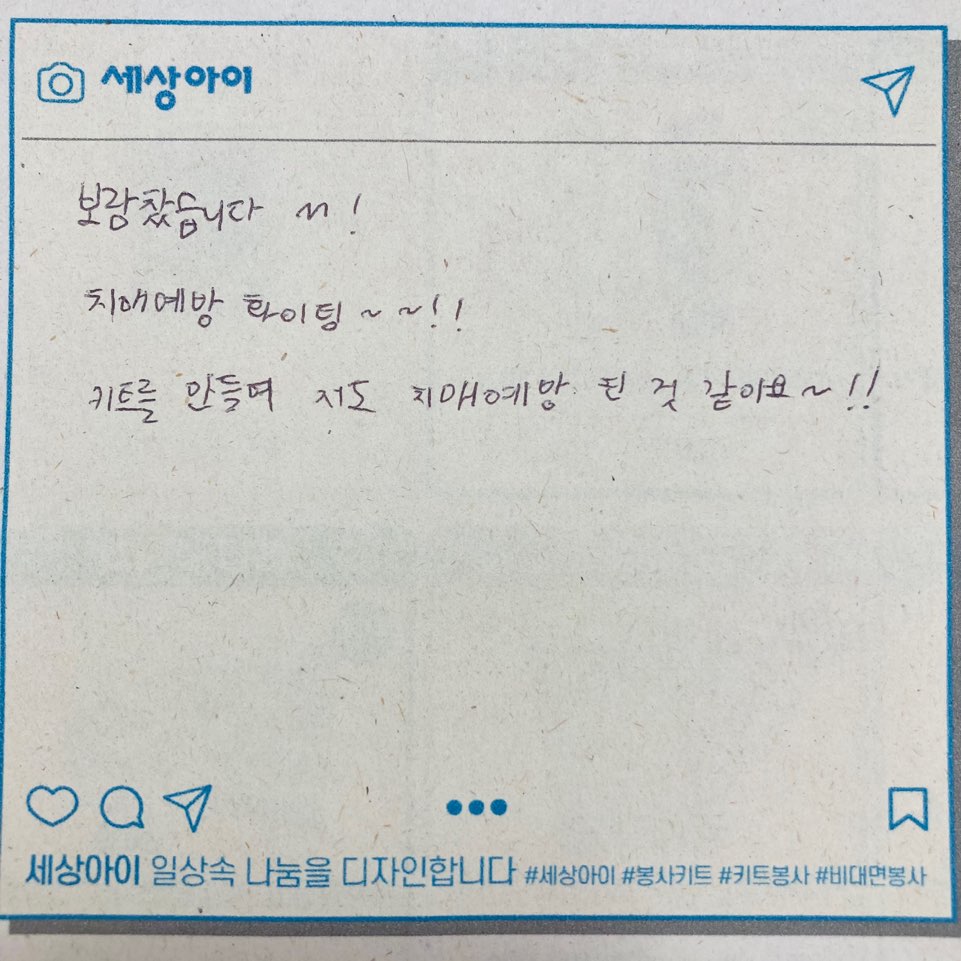 세상아이
보람찼습니다 ^^!
치매예방 화이팅~~!!
키트를 만들며 저도 치매예방 된 것 같아요~!!
세상아이 일상속 나눔을 디자인합니다 #세상아이 #봉사키트 #키트봉사 #비대면봉사